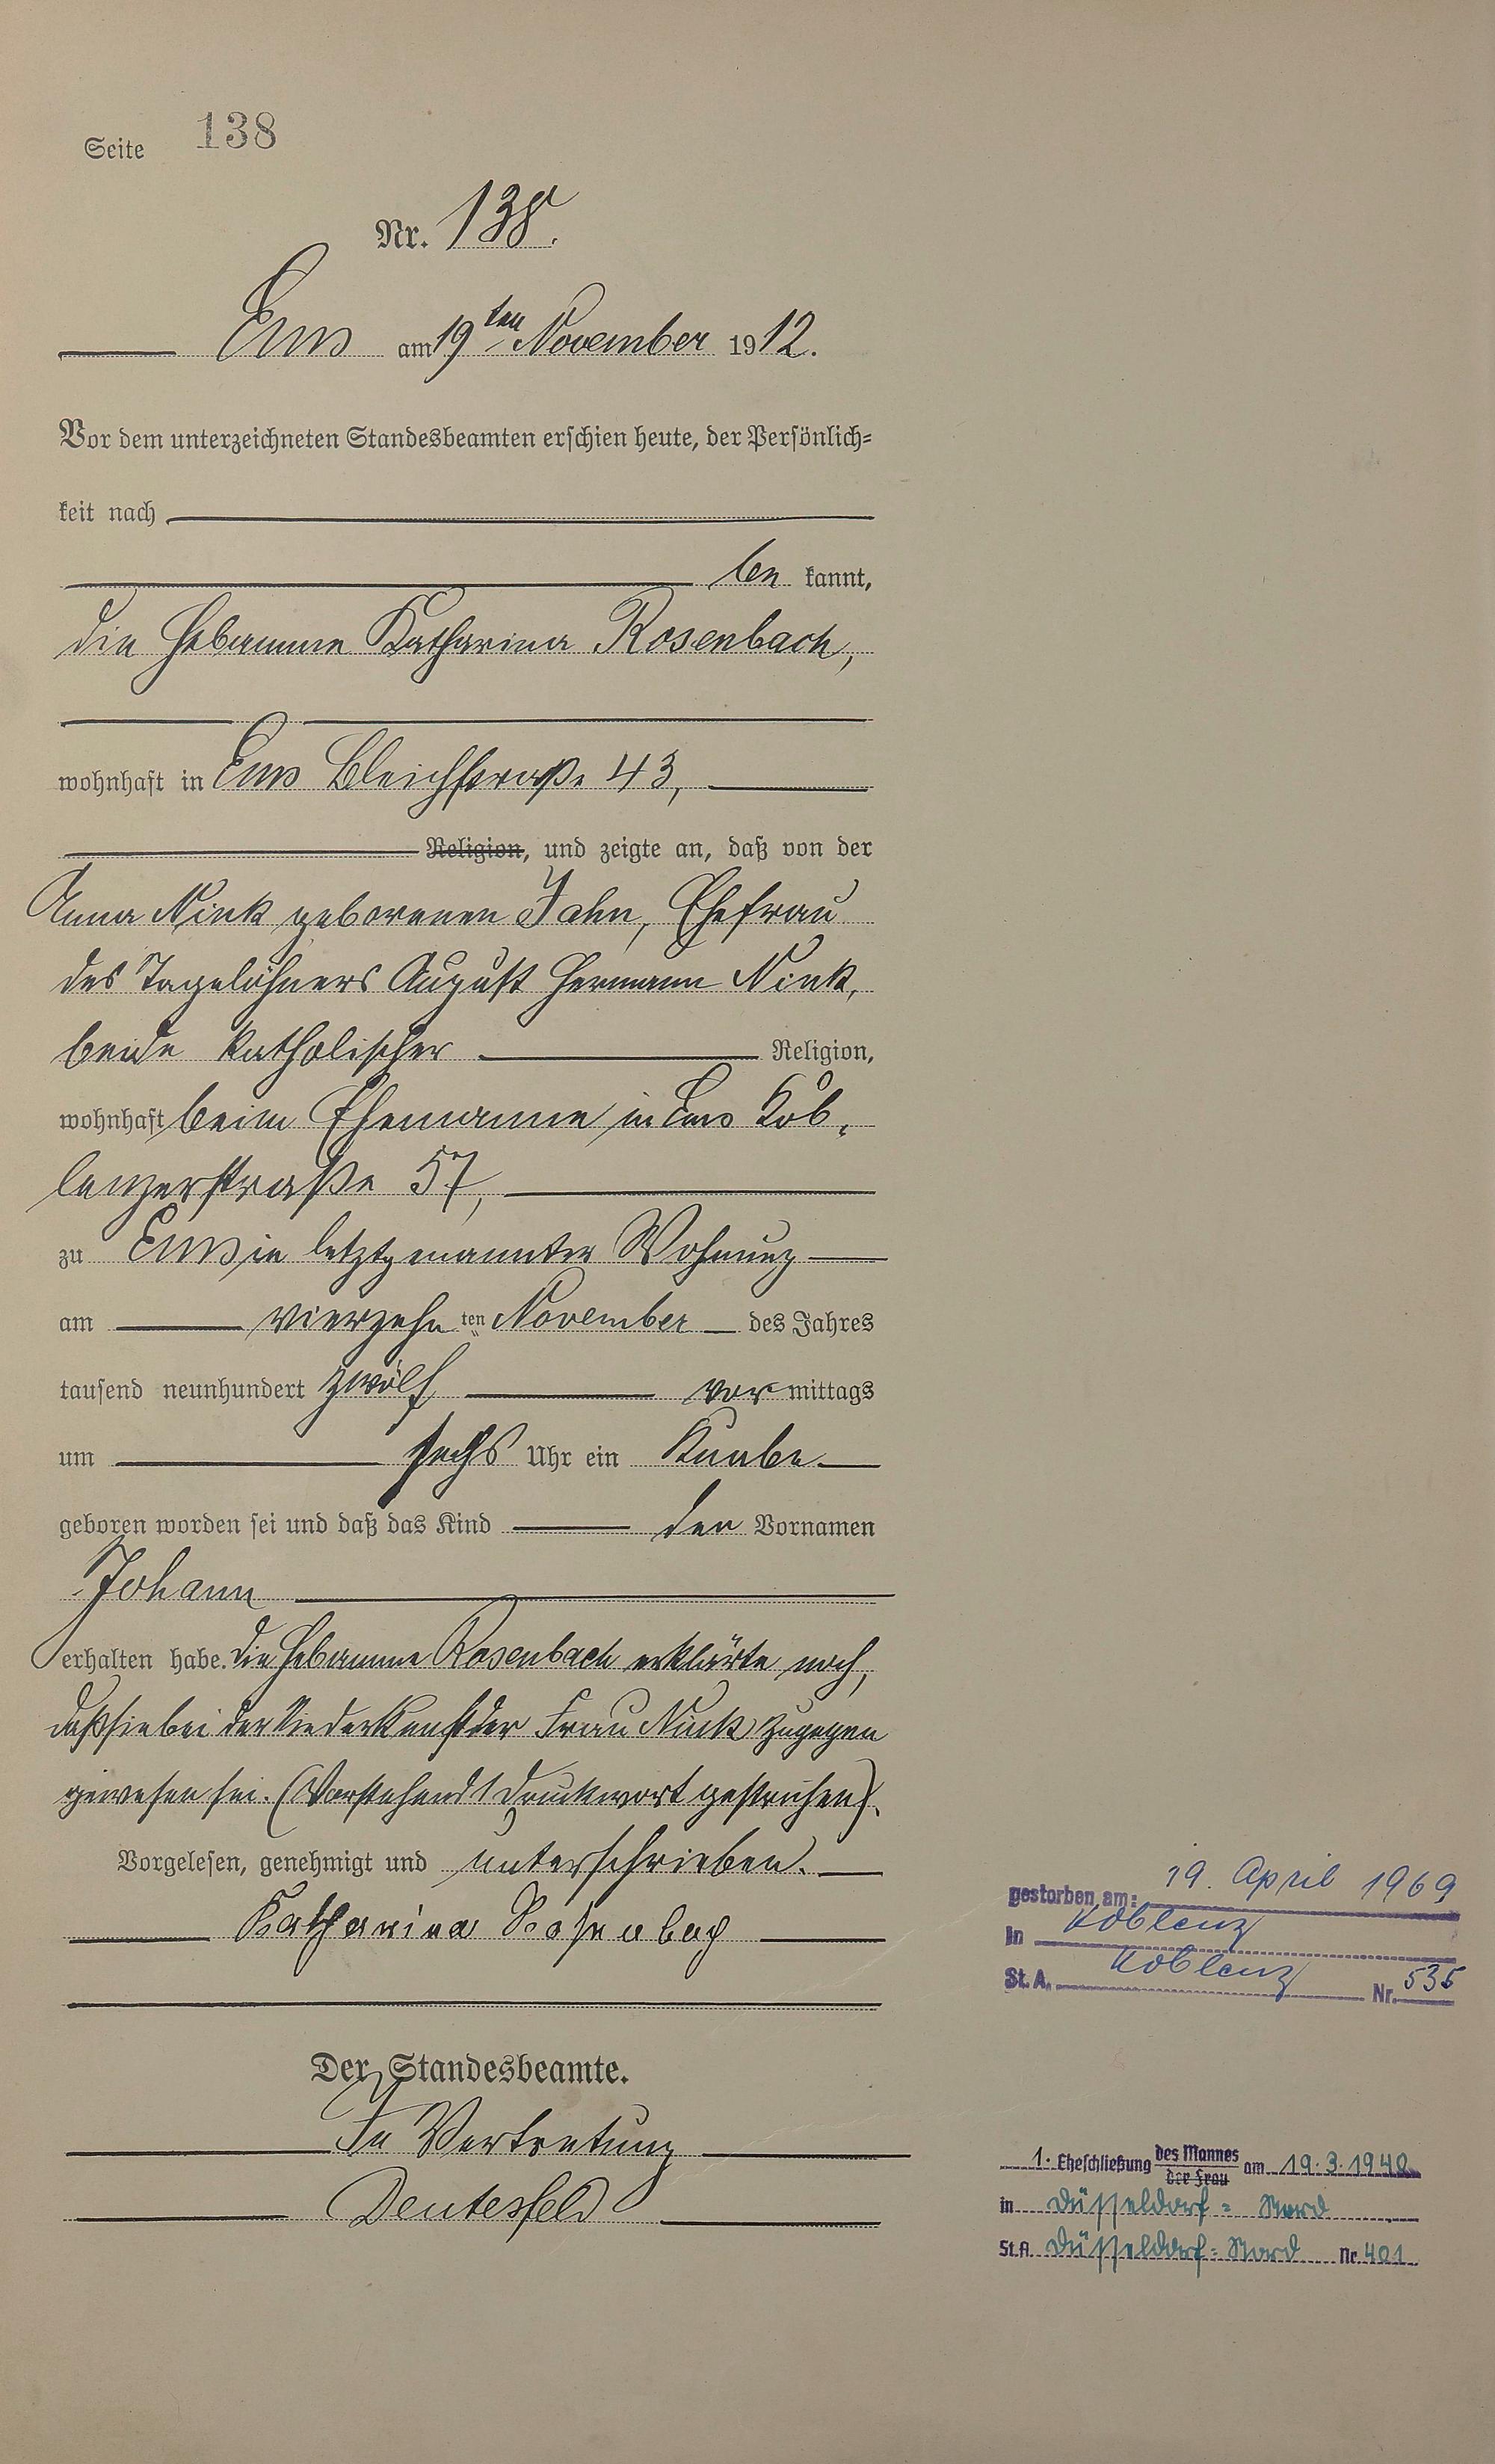 Seite 138
Nr. 138.
Ems am 19ten November 1912.
Vor dem unterzeichneten Standesbeamten erschien heute, der Persönlich-
keit nach
be kannt,
die Hebamme Katharina Rosenbach,
wohnhaft in Ems Bleichstraße 43,
Religion, und zeigte an, daß von der
Anna Nink geborenen Jahn, Ehefrau
des Tagelöhners August Hermann Nink,
beide katholischer Religion,
wohnhaft beim Ehemanne in Ems Kob-
lenzerstraße 57,
zu Ems in letztgenannter Wohnung
am vierzehn ten November des Jahres
tausend neunhundert zwölf vor mittags
um sechs Uhr ein Knabe
geboren worden sei und daß das Kind den Vornamen
Johann
erhalten habe. Die Hebamme Rosenbach erklärte noch,
daß sie bei der Niederkunft der Frau Nink zugegen
gewesen sei. (Vorstehend 1 Druckwort gestrichen).
Vorgelesen, genehmigt und unterschrieben.
Katharina Rosenbach
Der Standesbeamte.
In Vertretung
Deutesfeld
gestorben am: 19. April 1969
in Koblenz
St. A. Koblenz Nr. 535
1. Eheschließung des Mannes am 19.3.1940
der Frau
in Düsseldorf-Nord
St.A. Düsseldorf-Nord Nr. 401